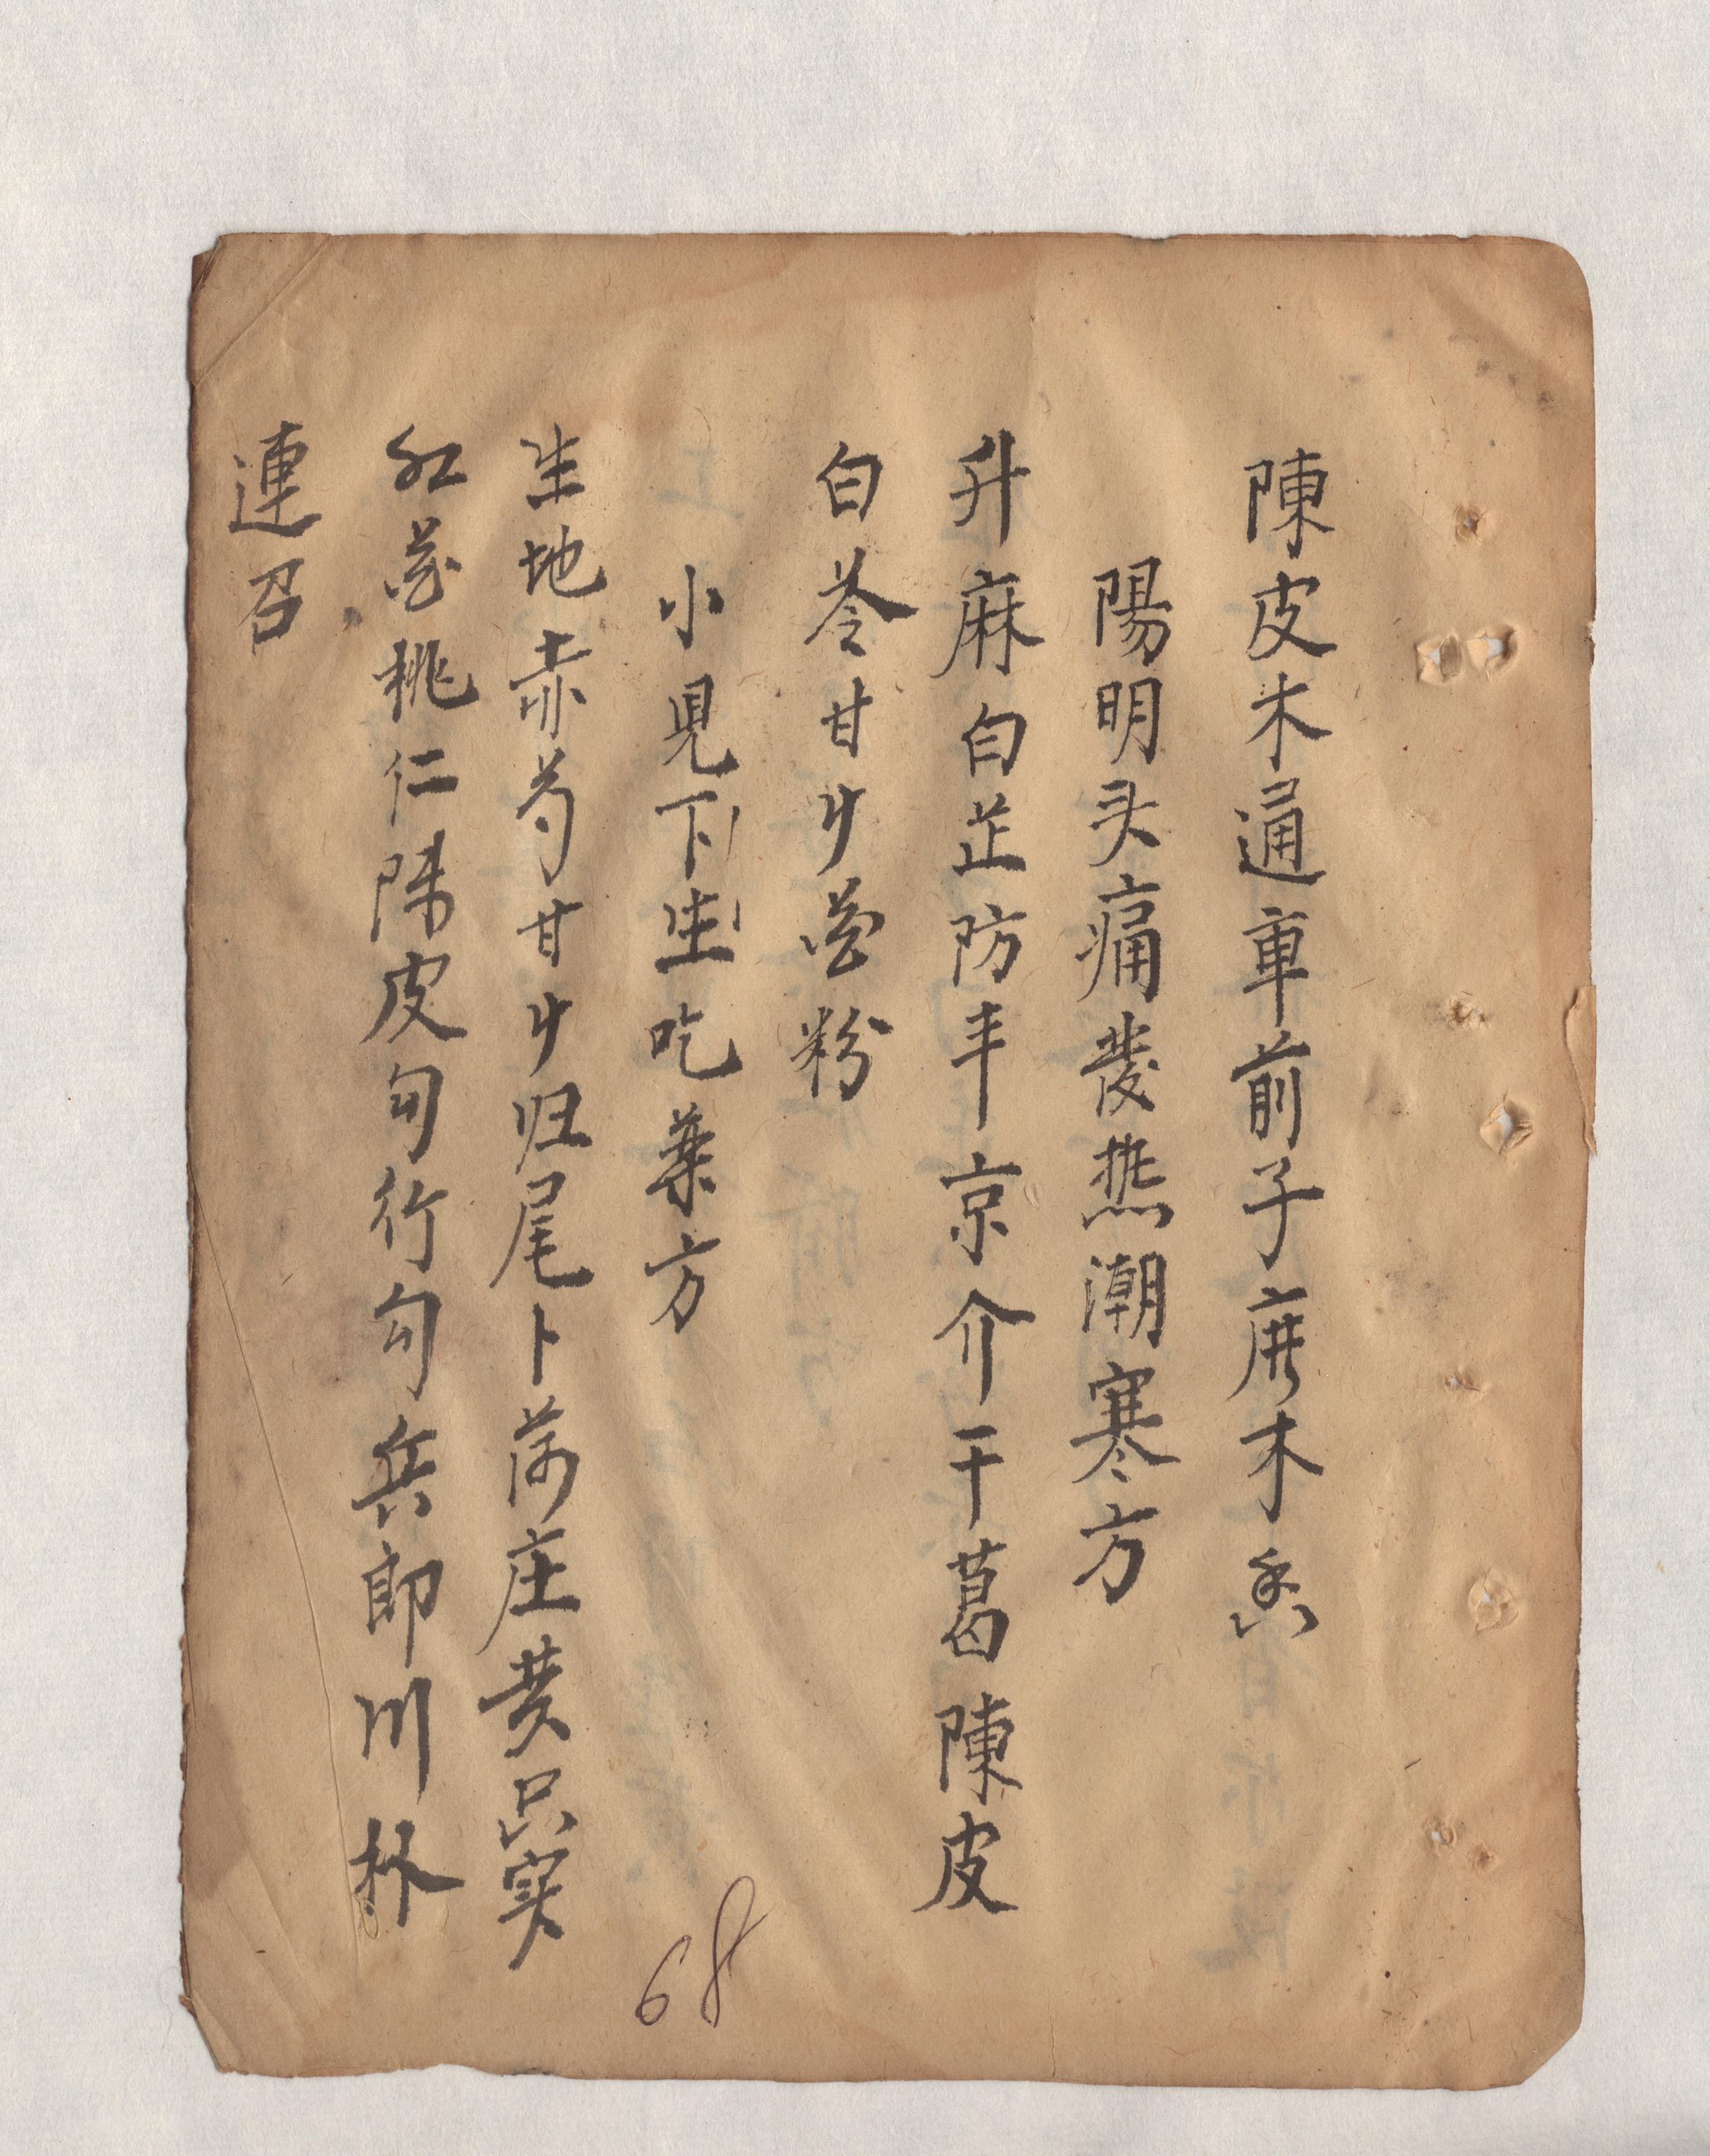 陳皮木通車前子唐木香
陽明头痛發热潮寒方
升麻白芷防丰京介干葛陳皮
白苓甘廾花粉
小児下生吃薬方
生地赤芍甘廾归尾卜荷庄黄只实
红花桃仁陈皮勾竹勾兵郎川林
連召
68